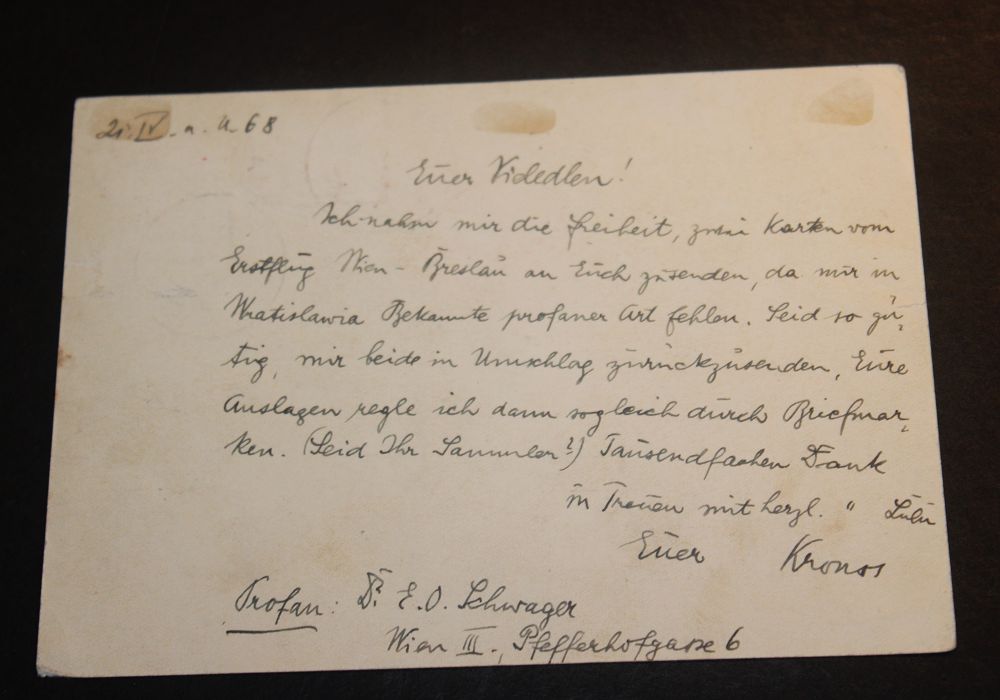 21. IV. a. U. 68
Euer Vieledlen!
Ich nahm mir die Freiheit, zwei Karten vom
Erstflug Wien - Breslau an Euch zusenden, da mir in
Wratislawia Bekannte profaner Art fehlen. Seid so gü-
tig, mir beide in Umschlag zurückzusenden, Eure
Auslagen regle ich dann sogleich durch Briefmar-
ken. (Seid Ihr Sammler?) Tausendfachen Dank
in Treuen mit herzl. " Lulu
Euer Kronos
Profan: Dr. E. O. Schwager
Wien III., Pfefferhofgasse 6